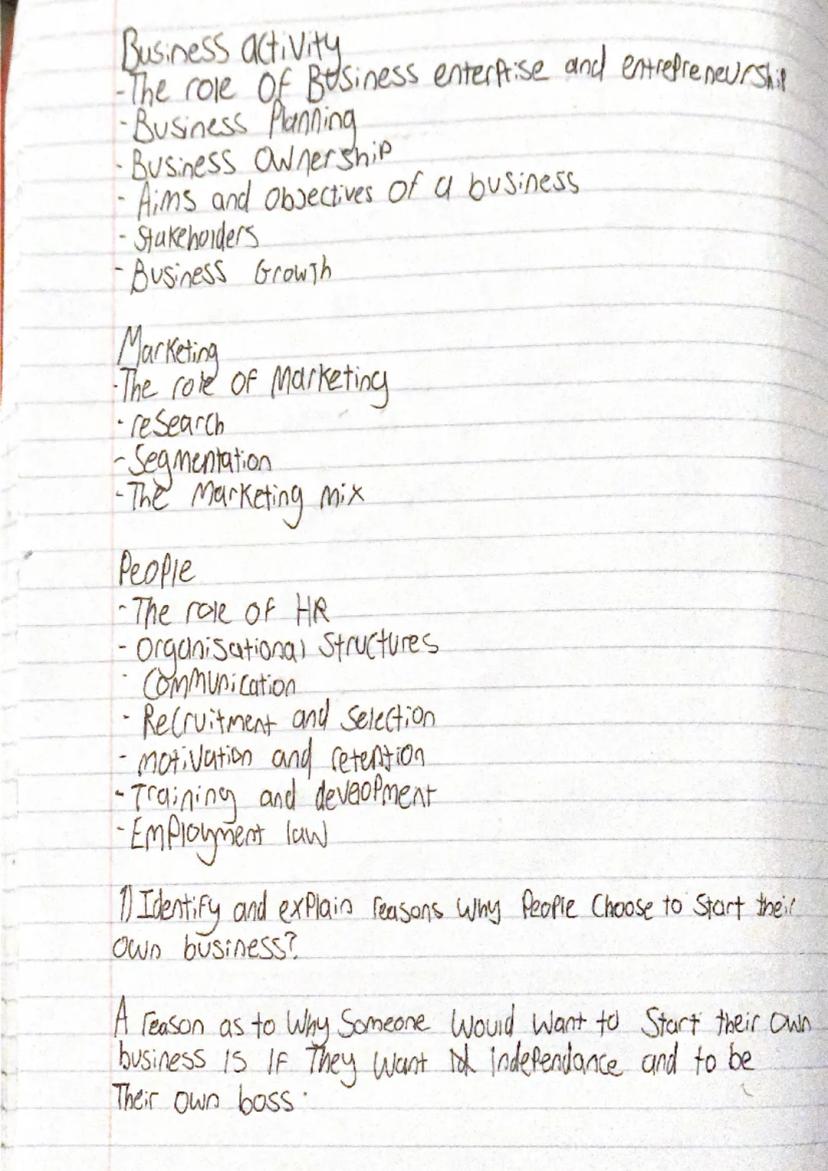 Business activity
- The role of Business enterprise and entrepreneurship
- Business Planning
- Business Ownership
- Aims and objectives of a business
- Stakeholders
- Business Growth
Marketing
- The role of Marketing
- research
- Segmentation
- The Marketing mix
People
- The role of HR
- Organisational Structures
- Communication
- Recruitment and selection
- motivation and retention
- Training and deveopment
- Employment law
1) Identify and explain reasons why People Choose to Start their
own business?
A reason as to why Someone would want to Start their own
business is if they want independance and to be
Their own boss.